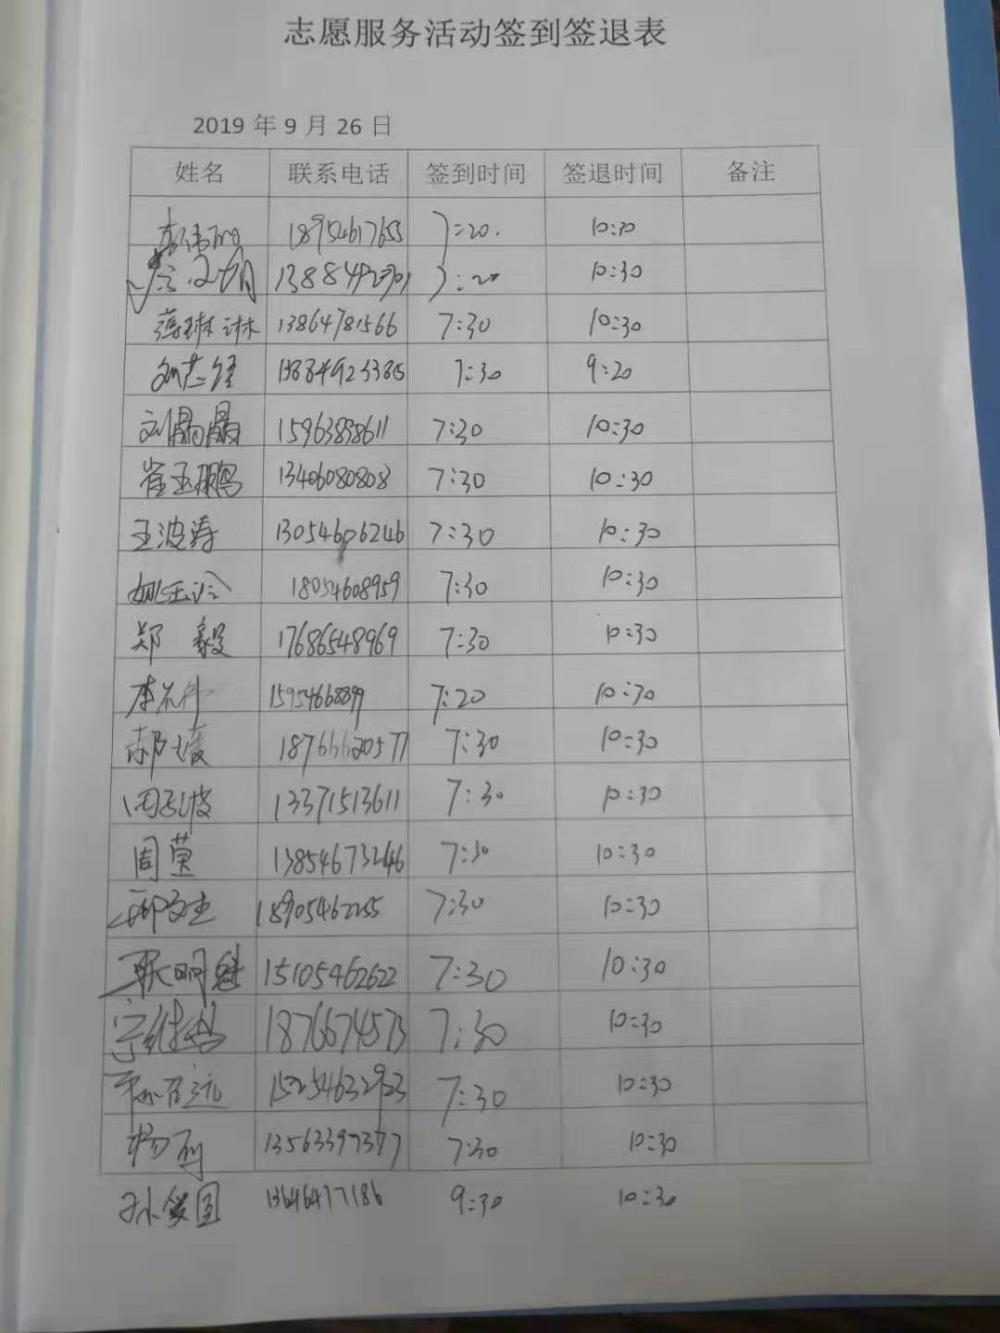 志愿服务活动签到签退表
2019 年 9 月 26 日
姓名 联系电话 签到时间 签退时间 备注
18954617655 7:20. 10:30
7:20 10:30
薛琳琳 13864781566 7:30 10:30
13884923385 7:30 9:20
刘晶晶 15963898611 7:30 10:30
崔玉鹏 13406080808 7:30 10:30
王波涛 13054606246 7:30 10:30
18054608959 7:30 10:30
郑毅 17686548969 7:30 10:30
15954668899 7:20 10:30
郝 18766620577 7:30 10:30
13371513611 7:30 10:30
周萤 13854673246 7:30 10:30
18905462255 7:30 10:30
15105462622 7:30 10:30
1876674573 7:30 10:30
15254632923 7:30 10:30
杨 13563397377 7:30 10:30
孙 国 13646477186 9:30 10:30